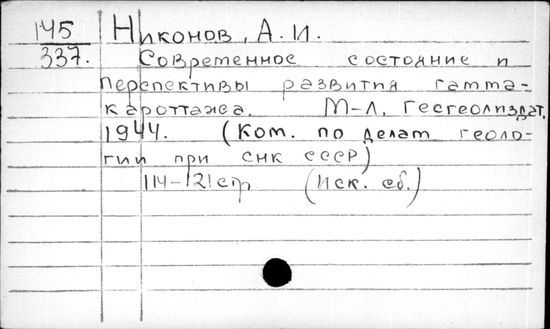 145 Никонов, А. И.
337. Современное состояние и
перспективы развития гамма-
кароттажа. М-Л, Госгеолиздат,
1944. (Ком. по делам геоло-
гии при СНК СССР)
114-121 стр (Иск. сб.)